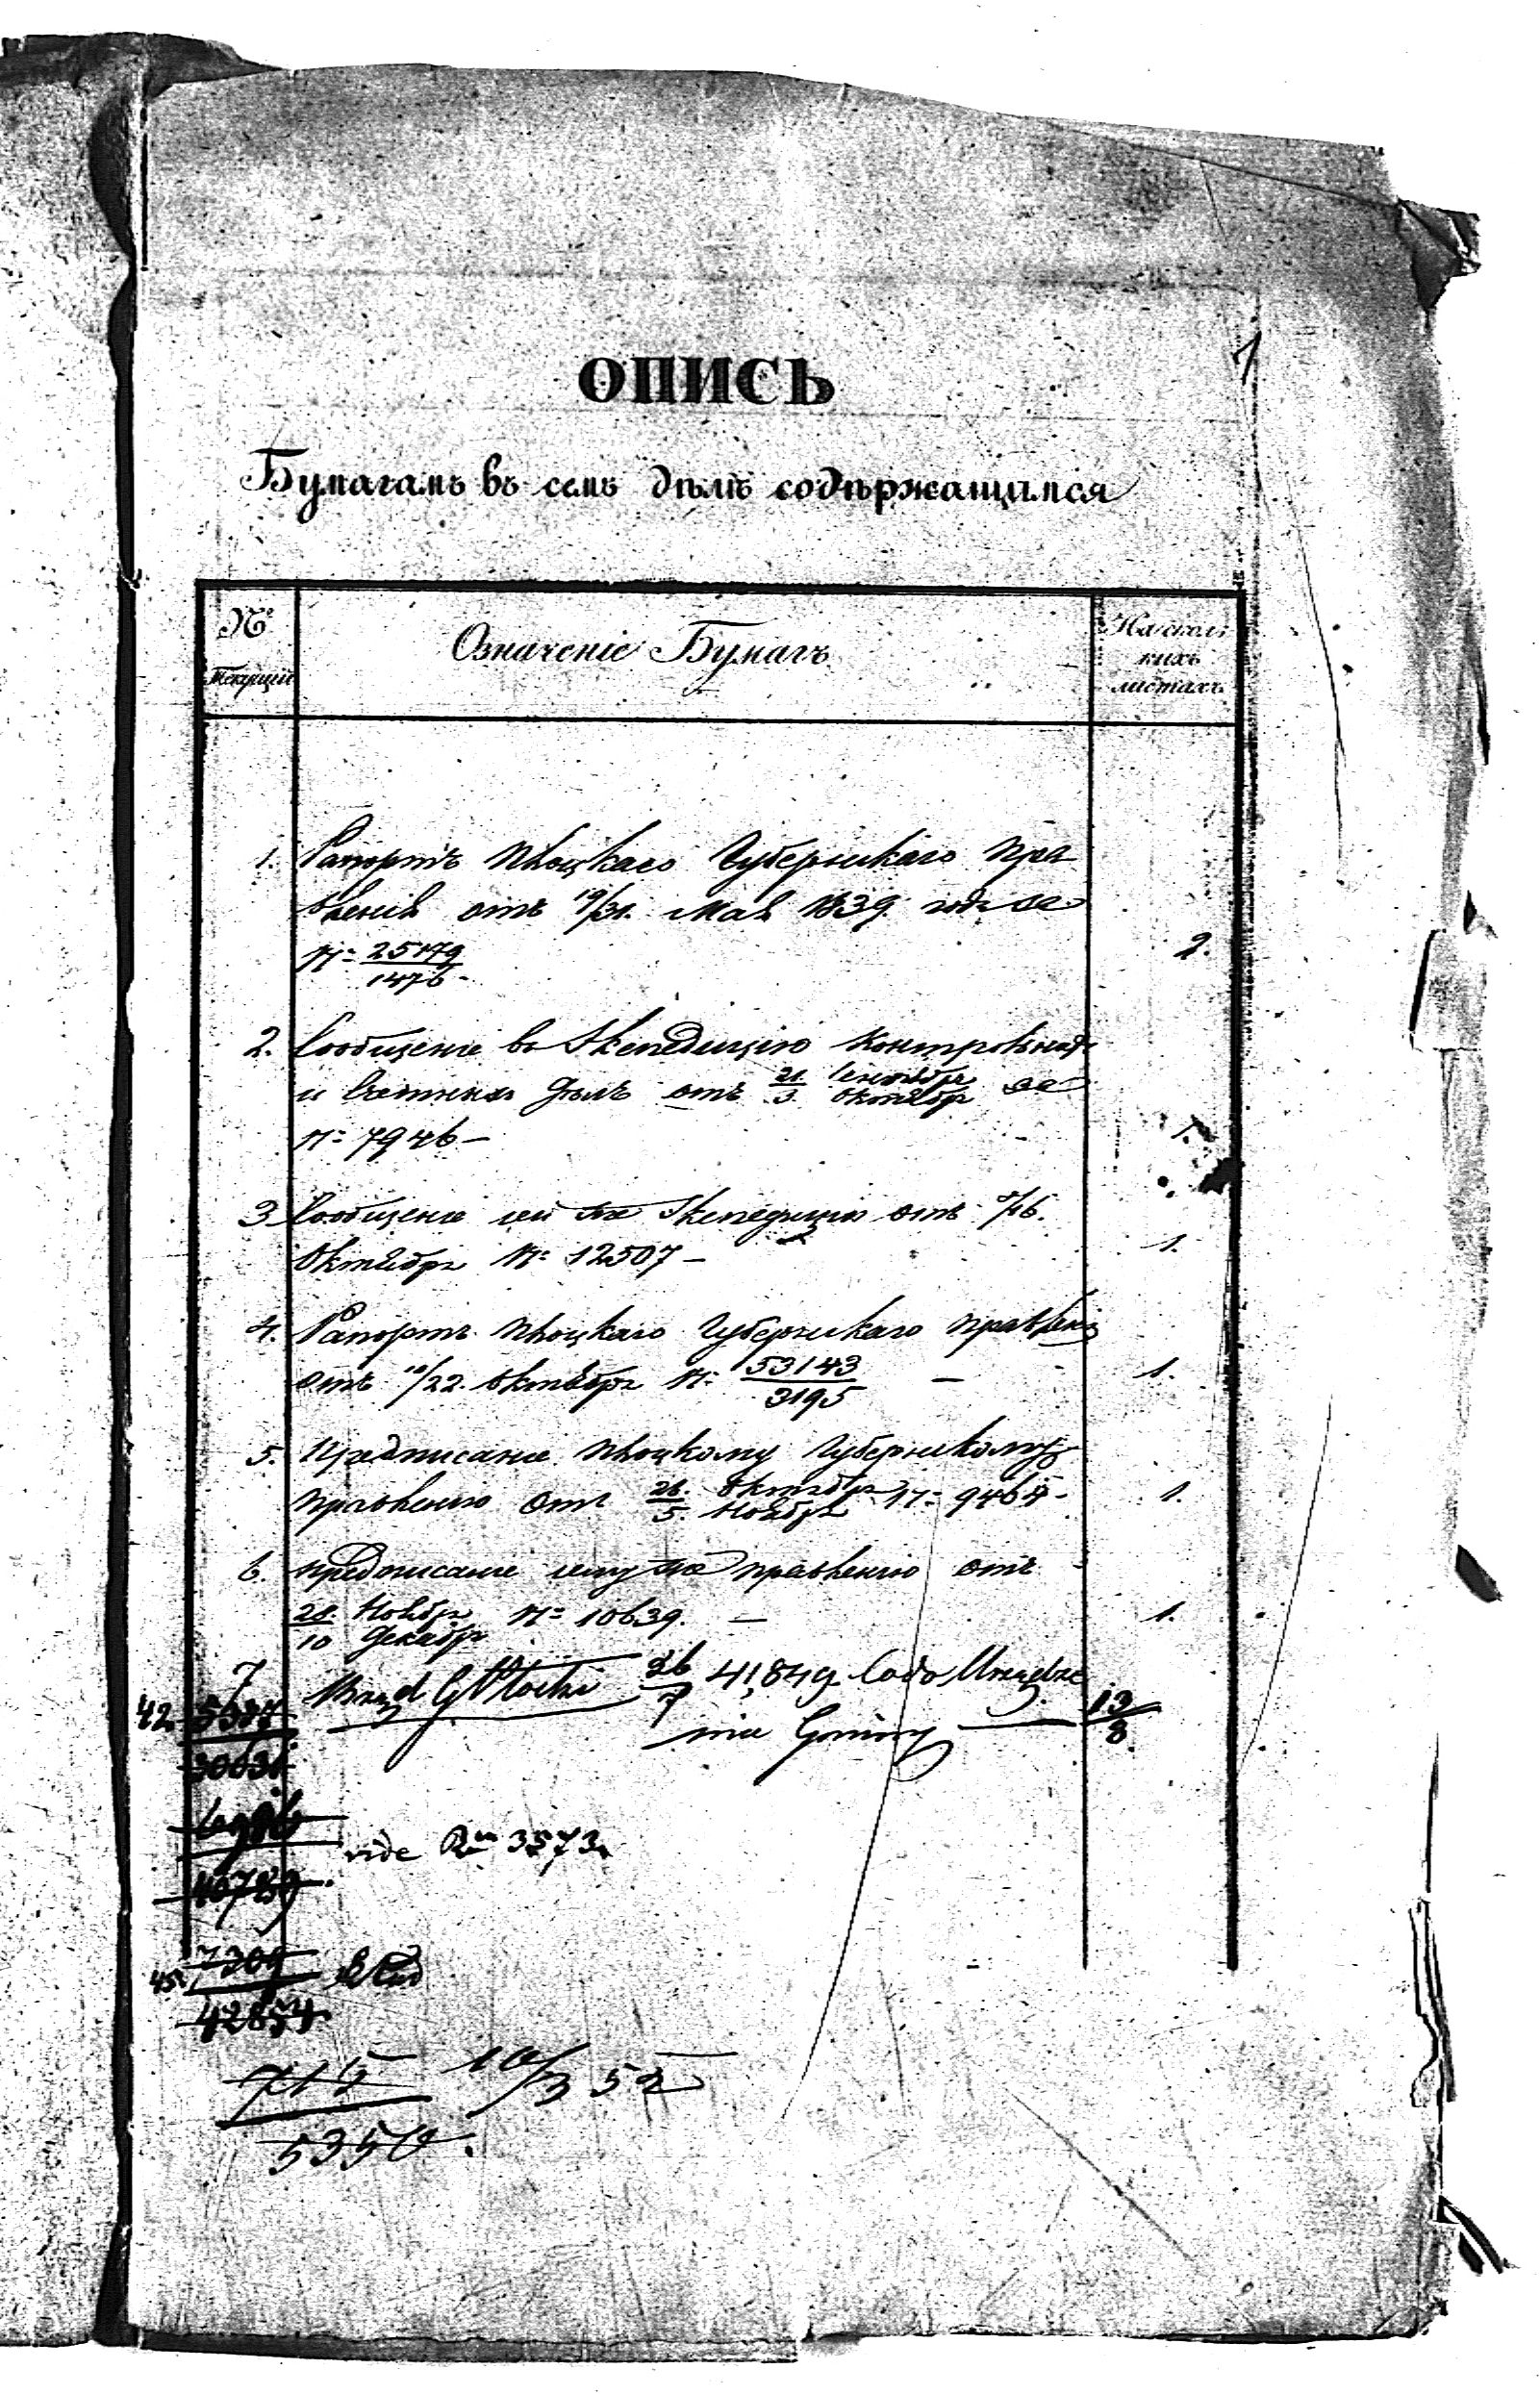 1
ОПИСЬ
Бумагамъ въ семъ дѣлѣ содержащимся
№ Текущій
Означеніе Бумагъ
На сколькихъ листахъ
1. Рапортъ Плоцкаго Губернскаго Пра
вленія отъ 19/31. Мая 1839. года за
№ 25179/1476 - 2.
2. Сообщеніе въ Экспедицію Контрольныхъ
и Счетныхъ Дѣлъ отъ 21. Сентября / 3 Октября за
№ 7946 — 1.
3 Сообщеніе сей же Экспедиціи отъ 4/16.
Октября № 12507 — 1.
4. Рапортъ Плоцкаго Губернскаго Правленія
отъ 10/22. Октября № 53143/3195 — 1.
5. Предписаніе Плоцкому Губернскому
Правленію отъ 26. Октября / 5. Ноября № 9464 - 1.
6. Предписаніе сему же Правленію отъ
28. Ноября / 10 Декабря № 10639. — 1.
7 Urząd G. Płocki 26/7 41,849 Urządze
42 nia Gminy — 13/8
vide 3573
45. 7309
42854
715 10/3 52
5350.